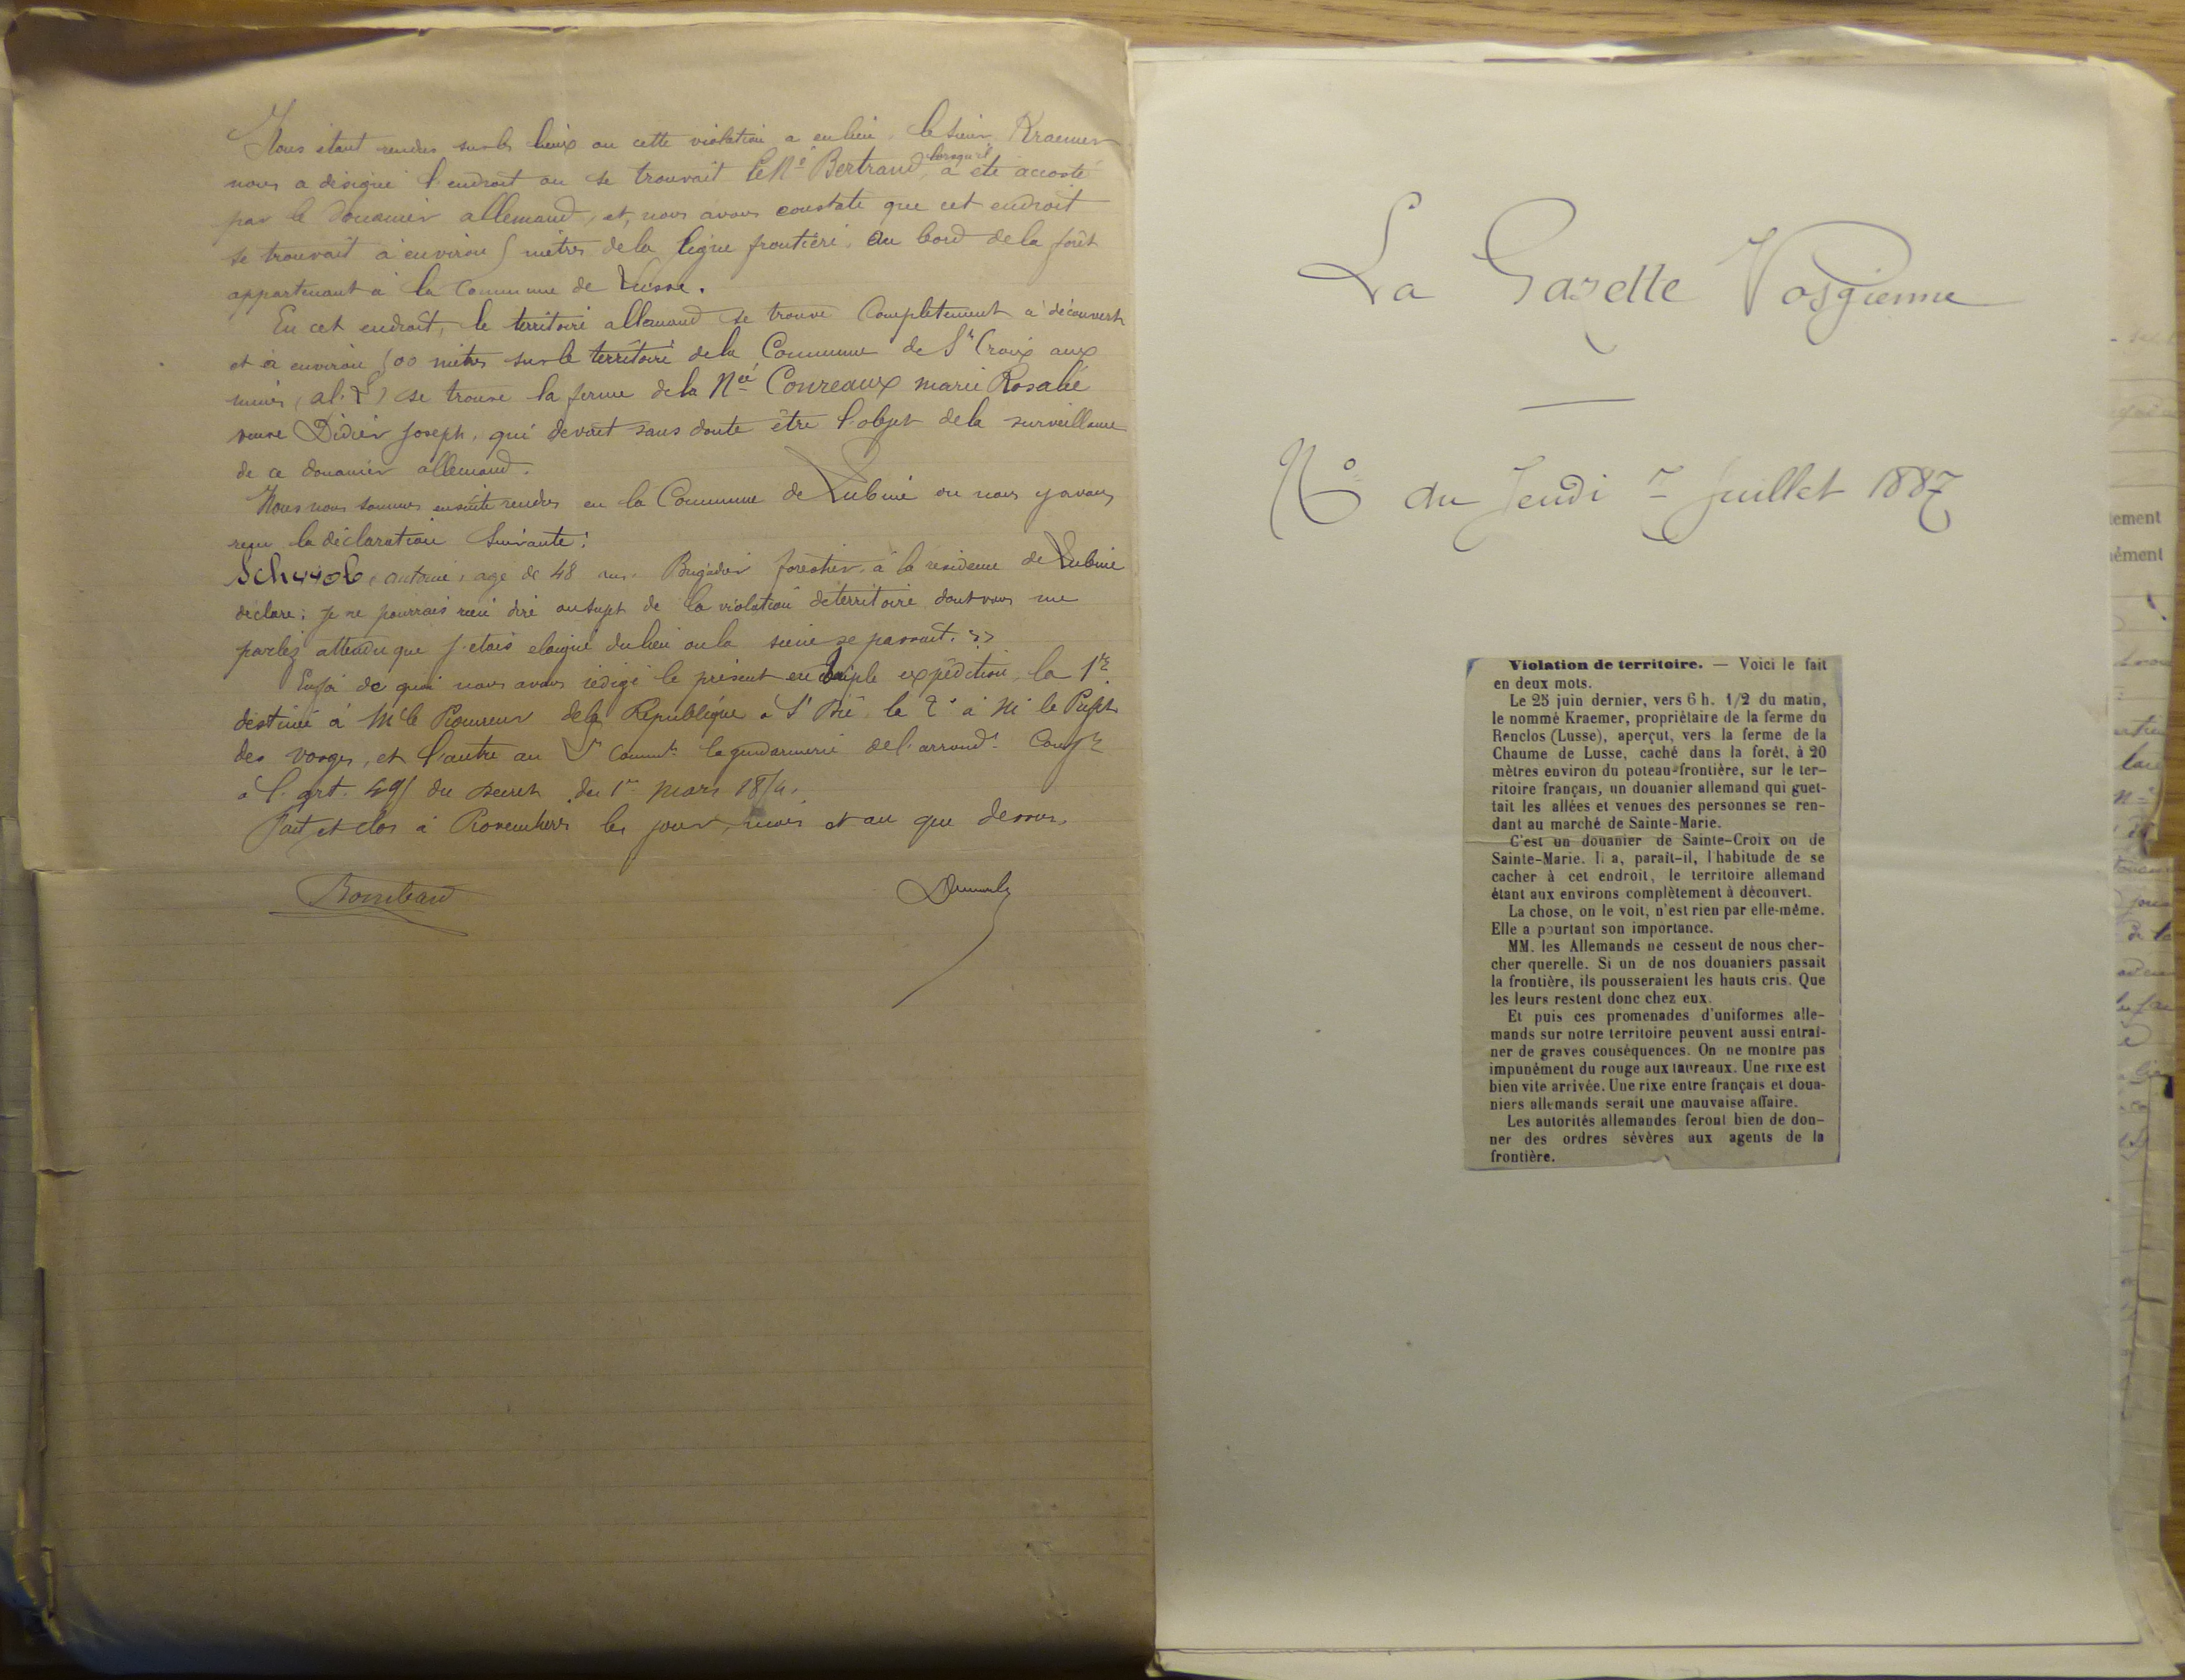 Nous étant rendus sur les lieux ou cette violation a eu lieu, le sieur Kraemer
nous a désigné l'endroit ou se trouvait le Né Bertrand lorsqu'il a été accosté
par le douanier allemand, et, nous avons constaté que cet endroit
se trouvait à environ 5 mètres de la ligne frontière, au bord de la forêt
appartenant à la Commune de Lusse.
En cet endroit, le territoire allemand se trouve Complètement à découvert
et à environ 500 mètres sur le territoire de la Commune de Ste Croix aux
mines, (al. L) se trouve la ferme de la Née Conreaux marie Rosalie
veuve Didier Joseph, qui devait sans doute être l'objet de la surveillance
de ce douanier allemand.
Nous nous sommes ensuite rendus en la Commune de Lubine ou nous y avons
reçu la déclaration Suivante:
Schwob, antoine, age de 48 ans, Brigadier forestier, à la résidence de Lubine
déclare: je ne pourrais rien dire au sujet de la violation de territoire dont vous me
parlez attendu que j'étais eloigné du lieu ou la scène se passait. »
En foi de quoi nous avons rédigé le présent en triple expédition, la 1re
destinée à Mr le Procureur de la République à St Dié, la 2e à Mr le Préfet
des vosges, et l'autre au Ct la gendarmerie de l'arrondt. Confre
à l'art. 495 du Decret du 1er Mars 1854.
Fait et clos à Provenchères les jour, mois et an que dessus.
La Gazette Vosgienne
No du Jeudi 7 Juillet 1887
Violation de territoire. — Voici le fait
en deux mots.
Le 25 juin dernier, vers 6 h. 1/2 du matin,
le nommé Kraemer, propriétaire de la ferme du
Renclos (Lusse), aperçut, vers la ferme de la
Chaume de Lusse, caché dans la forêt, à 20
mètres environ du poteau-frontière, sur le ter-
ritoire français, un douanier allemand qui guet-
tait les allées et venues des personnes se ren-
dant au marché de Sainte-Marie.
C'est un douanier de Sainte-Croix ou de
Sainte-Marie. Il a, paraît-il, l'habitude de se
cacher à cet endroit, le territoire allemand
étant aux environs complètement à découvert.
La chose, on le voit, n'est rien par elle-même.
Elle a pourtant son importance.
MM. les Allemands ne cessent de nous cher-
cher querelle. Si un de nos douaniers passait
la frontière, ils pousseraient les hauts cris. Que
les leurs restent donc chez eux.
Et puis ces promenades d'uniformes alle-
mands sur notre territoire peuvent aussi entraî-
ner de graves conséquences. On ne montre pas
impunément du rouge aux taureaux. Une rixe est
bien vite arrivée. Une rixe entre français et doua-
niers allemands serait une mauvaise affaire.
Les autorités allemandes feront bien de don-
ner des ordres sévères aux agents de la
frontière.